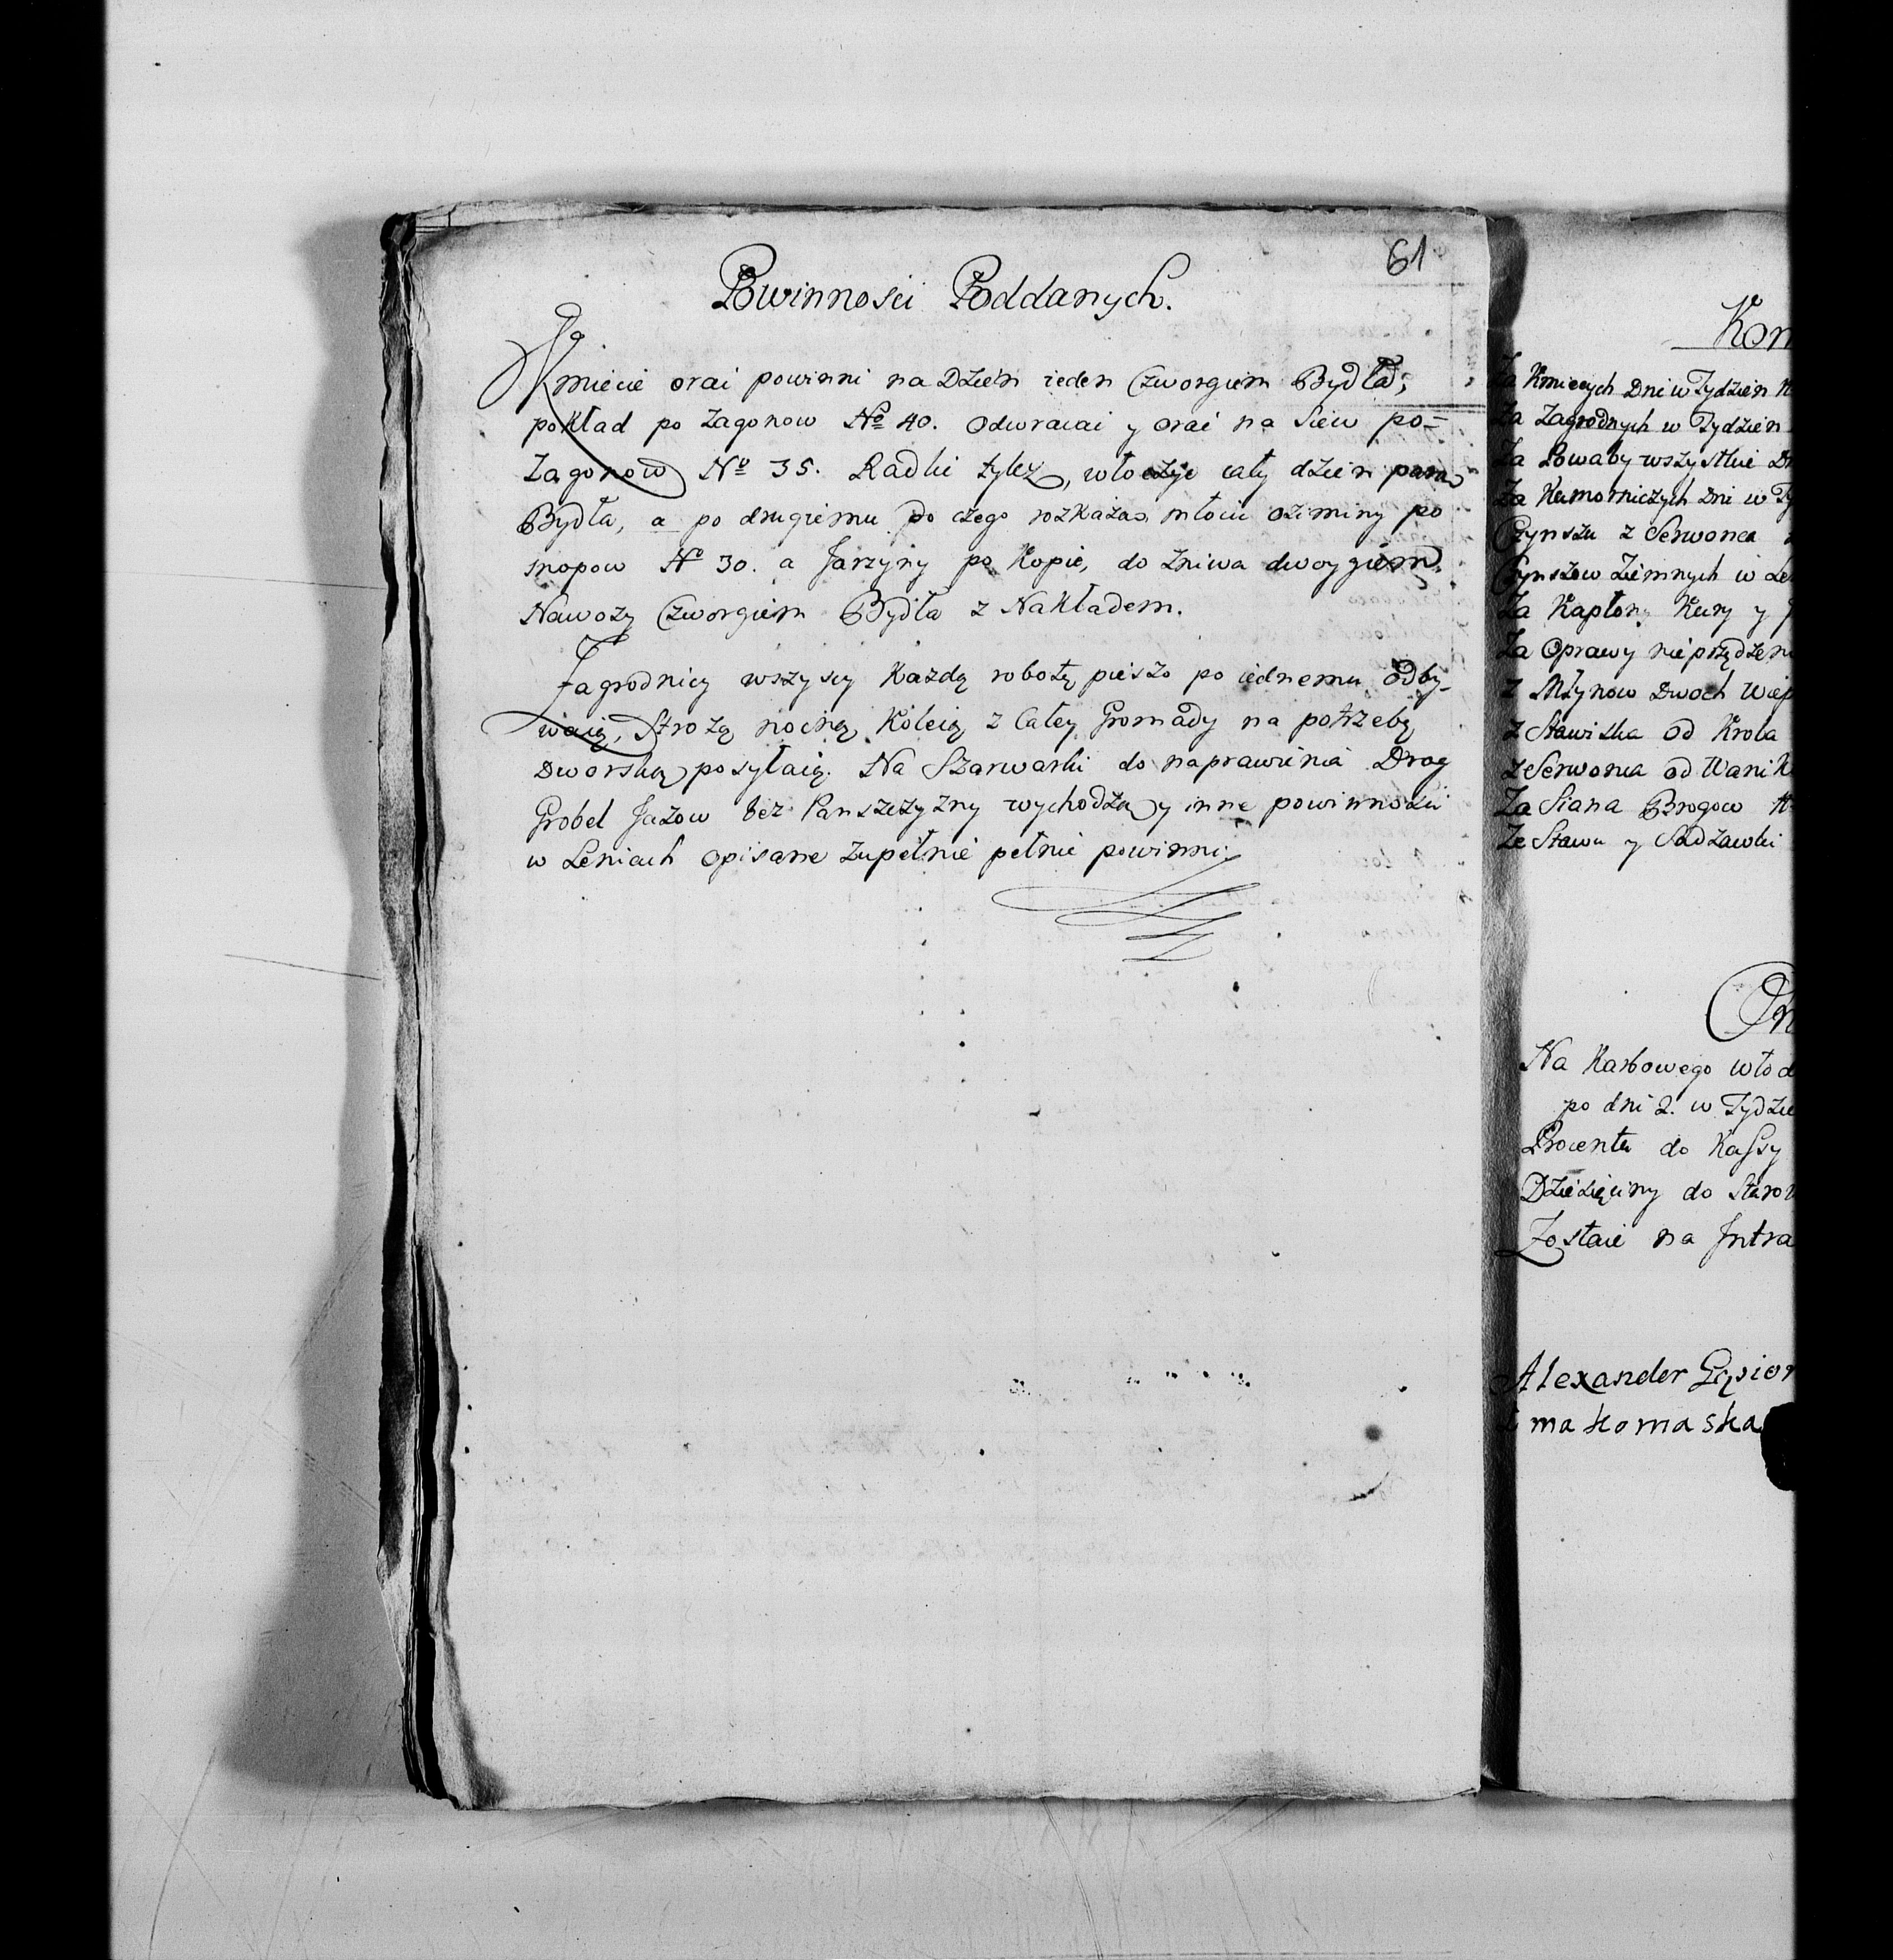 61
Powinnosci Poddanych.
Kmiecie orać powinni na Dzień ieden Czworgiem Bydła;
pokład po zagonow No 40. Odwracać y orać na Siew po=
Zagonow No 35. Radli tylez, włoczyć cały dzien parą
Bydła, a po drugiemu do czego rozkażą, młócić oziminy po
snopow No 30. a Jarzyny po Kopie, do zniwa dwoygiem
Nawozy Czworgiem Bydła z Nakładem.
Zagrodnicy wszyscy Każdą robotę pieszo po iednemu odby-
waią, Strożą nocną Koleią z Całey Gromady na potrzebę
Dworską posyłaią. Na Szarwarki do naprawienia Drog
Grobel Jazow bez Panszczyzny wychodzą y inne powinności
w Leniach opisane zupełnie pełnić powinni.
Kon
Za Kmiecych Dni w Tydzien
Za Zagrodnych w Tydzien
Za Powaby wszystkie
Za Komorniczych Dni w
Czynszu z Serwonca
Czynszow Ziemnych w
Za Kapłony Kury y
Za Oprawy nieprzędzen
z Młynow Dwoch Wiep
z Stawiska od Krola
z Serwonca od Wani
Za Siana Brogow
Ze Stawu y Sadzawki
Na Karbowego włod
po dni 2. w Tydzie
Procentu do Kassy
Dziesięciny do Staro
Zostaie na Intra
Alexander Gąsior
makomaska